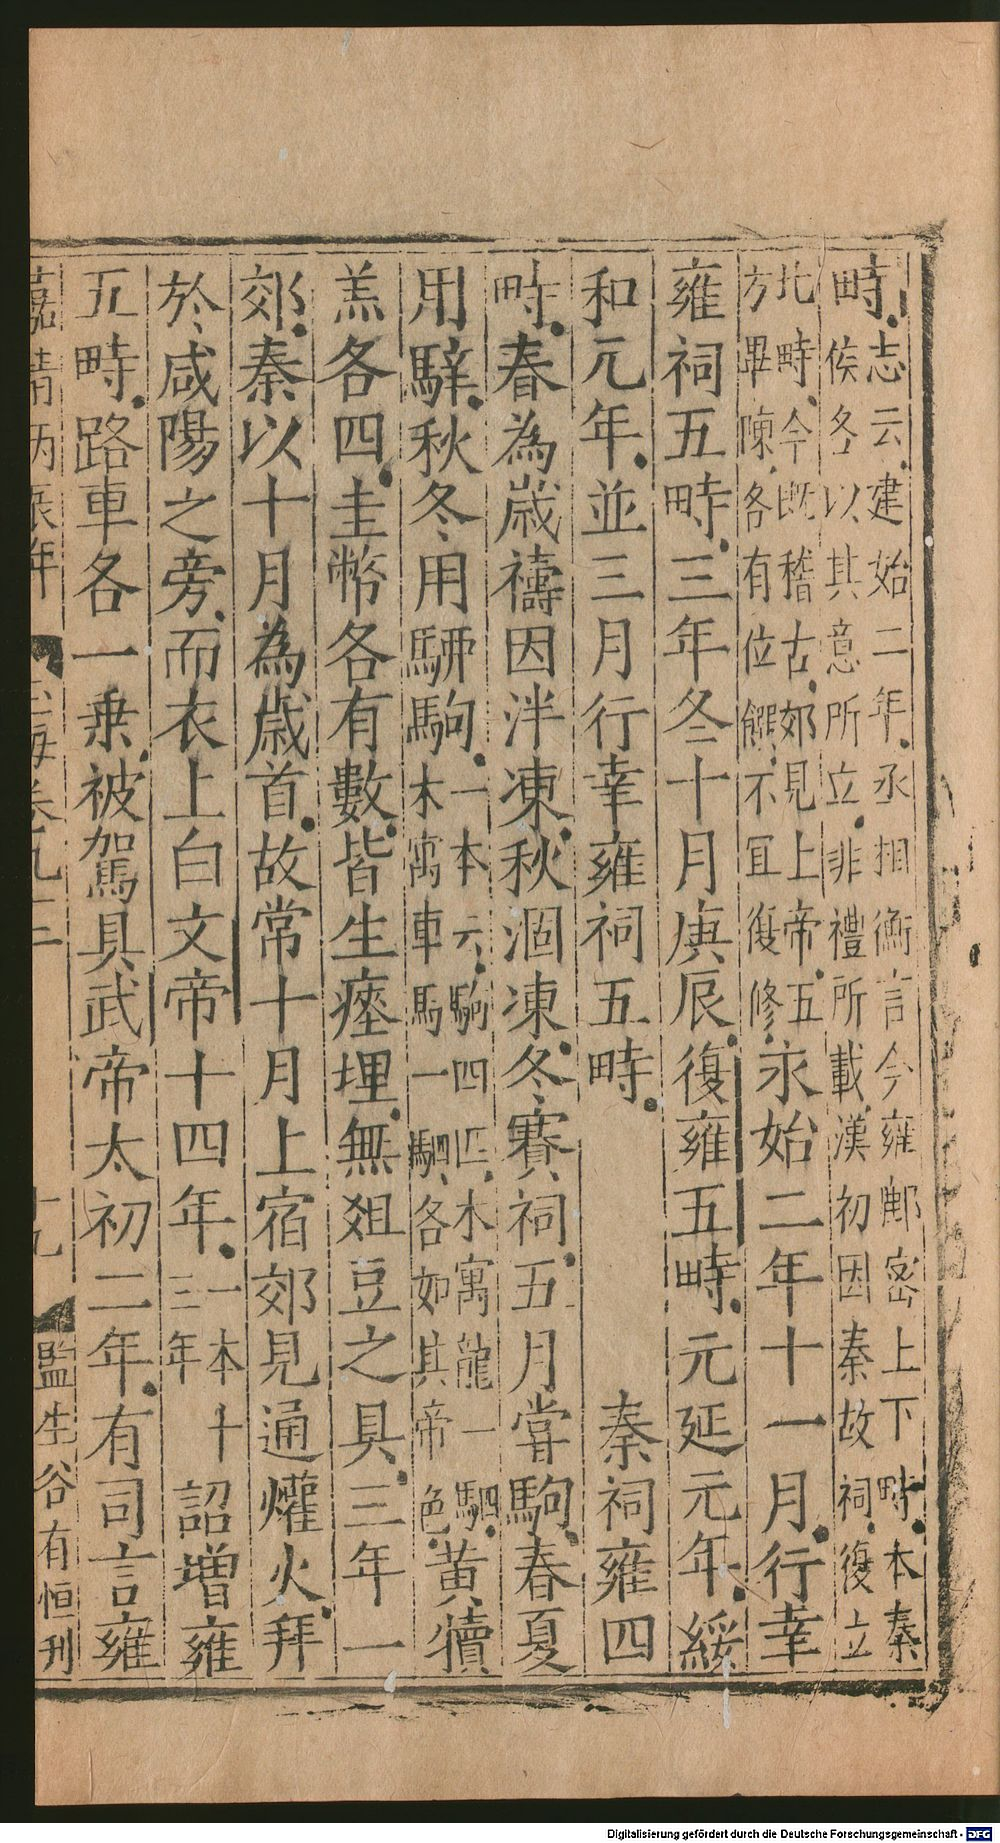 畤志云建始二年丞相衡言今雍鄜密上下畤本秦
侯各以其意所立非禮所載漢初因秦故祠復立
北畤今既稽古郊見上帝五
方畢陳各有位饌不宜復修永始二年十一月行幸
雍祠五畤三年冬十月庚辰復雍五畤元延元年綏
和元年並三月行幸雍祠五畤 秦祠雍四
畤春為歲禱因泮凍秋涸凍冬賽祠五月嘗駒春夏
用騂秋冬用駵駒一本云駒四匹木寓龍一駟
木寓車馬一駟各如其帝色黃犢
羔各四圭幣各有數皆生瘞埋無俎豆之具三年一
郊秦以十月為歲首故常十月上宿郊見通爟火拜
於咸陽之旁而衣上白文帝十四年一本十
三年詔增雍
五畤路車各一乘被駕具武帝太初二年有司言雍
嘉靖丙辰年 玉海卷九十二 十九 監生谷有恒刊
Digitalisierung gefördert durch die Deutsche Forschungsgemeinschaft - DFG